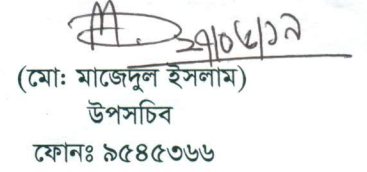 ২৭/০৫/১৯
(মো: মাজেদুল ইসলাম)
উপসচিব
ফোনঃ ৯৫৪৫৩৬৬